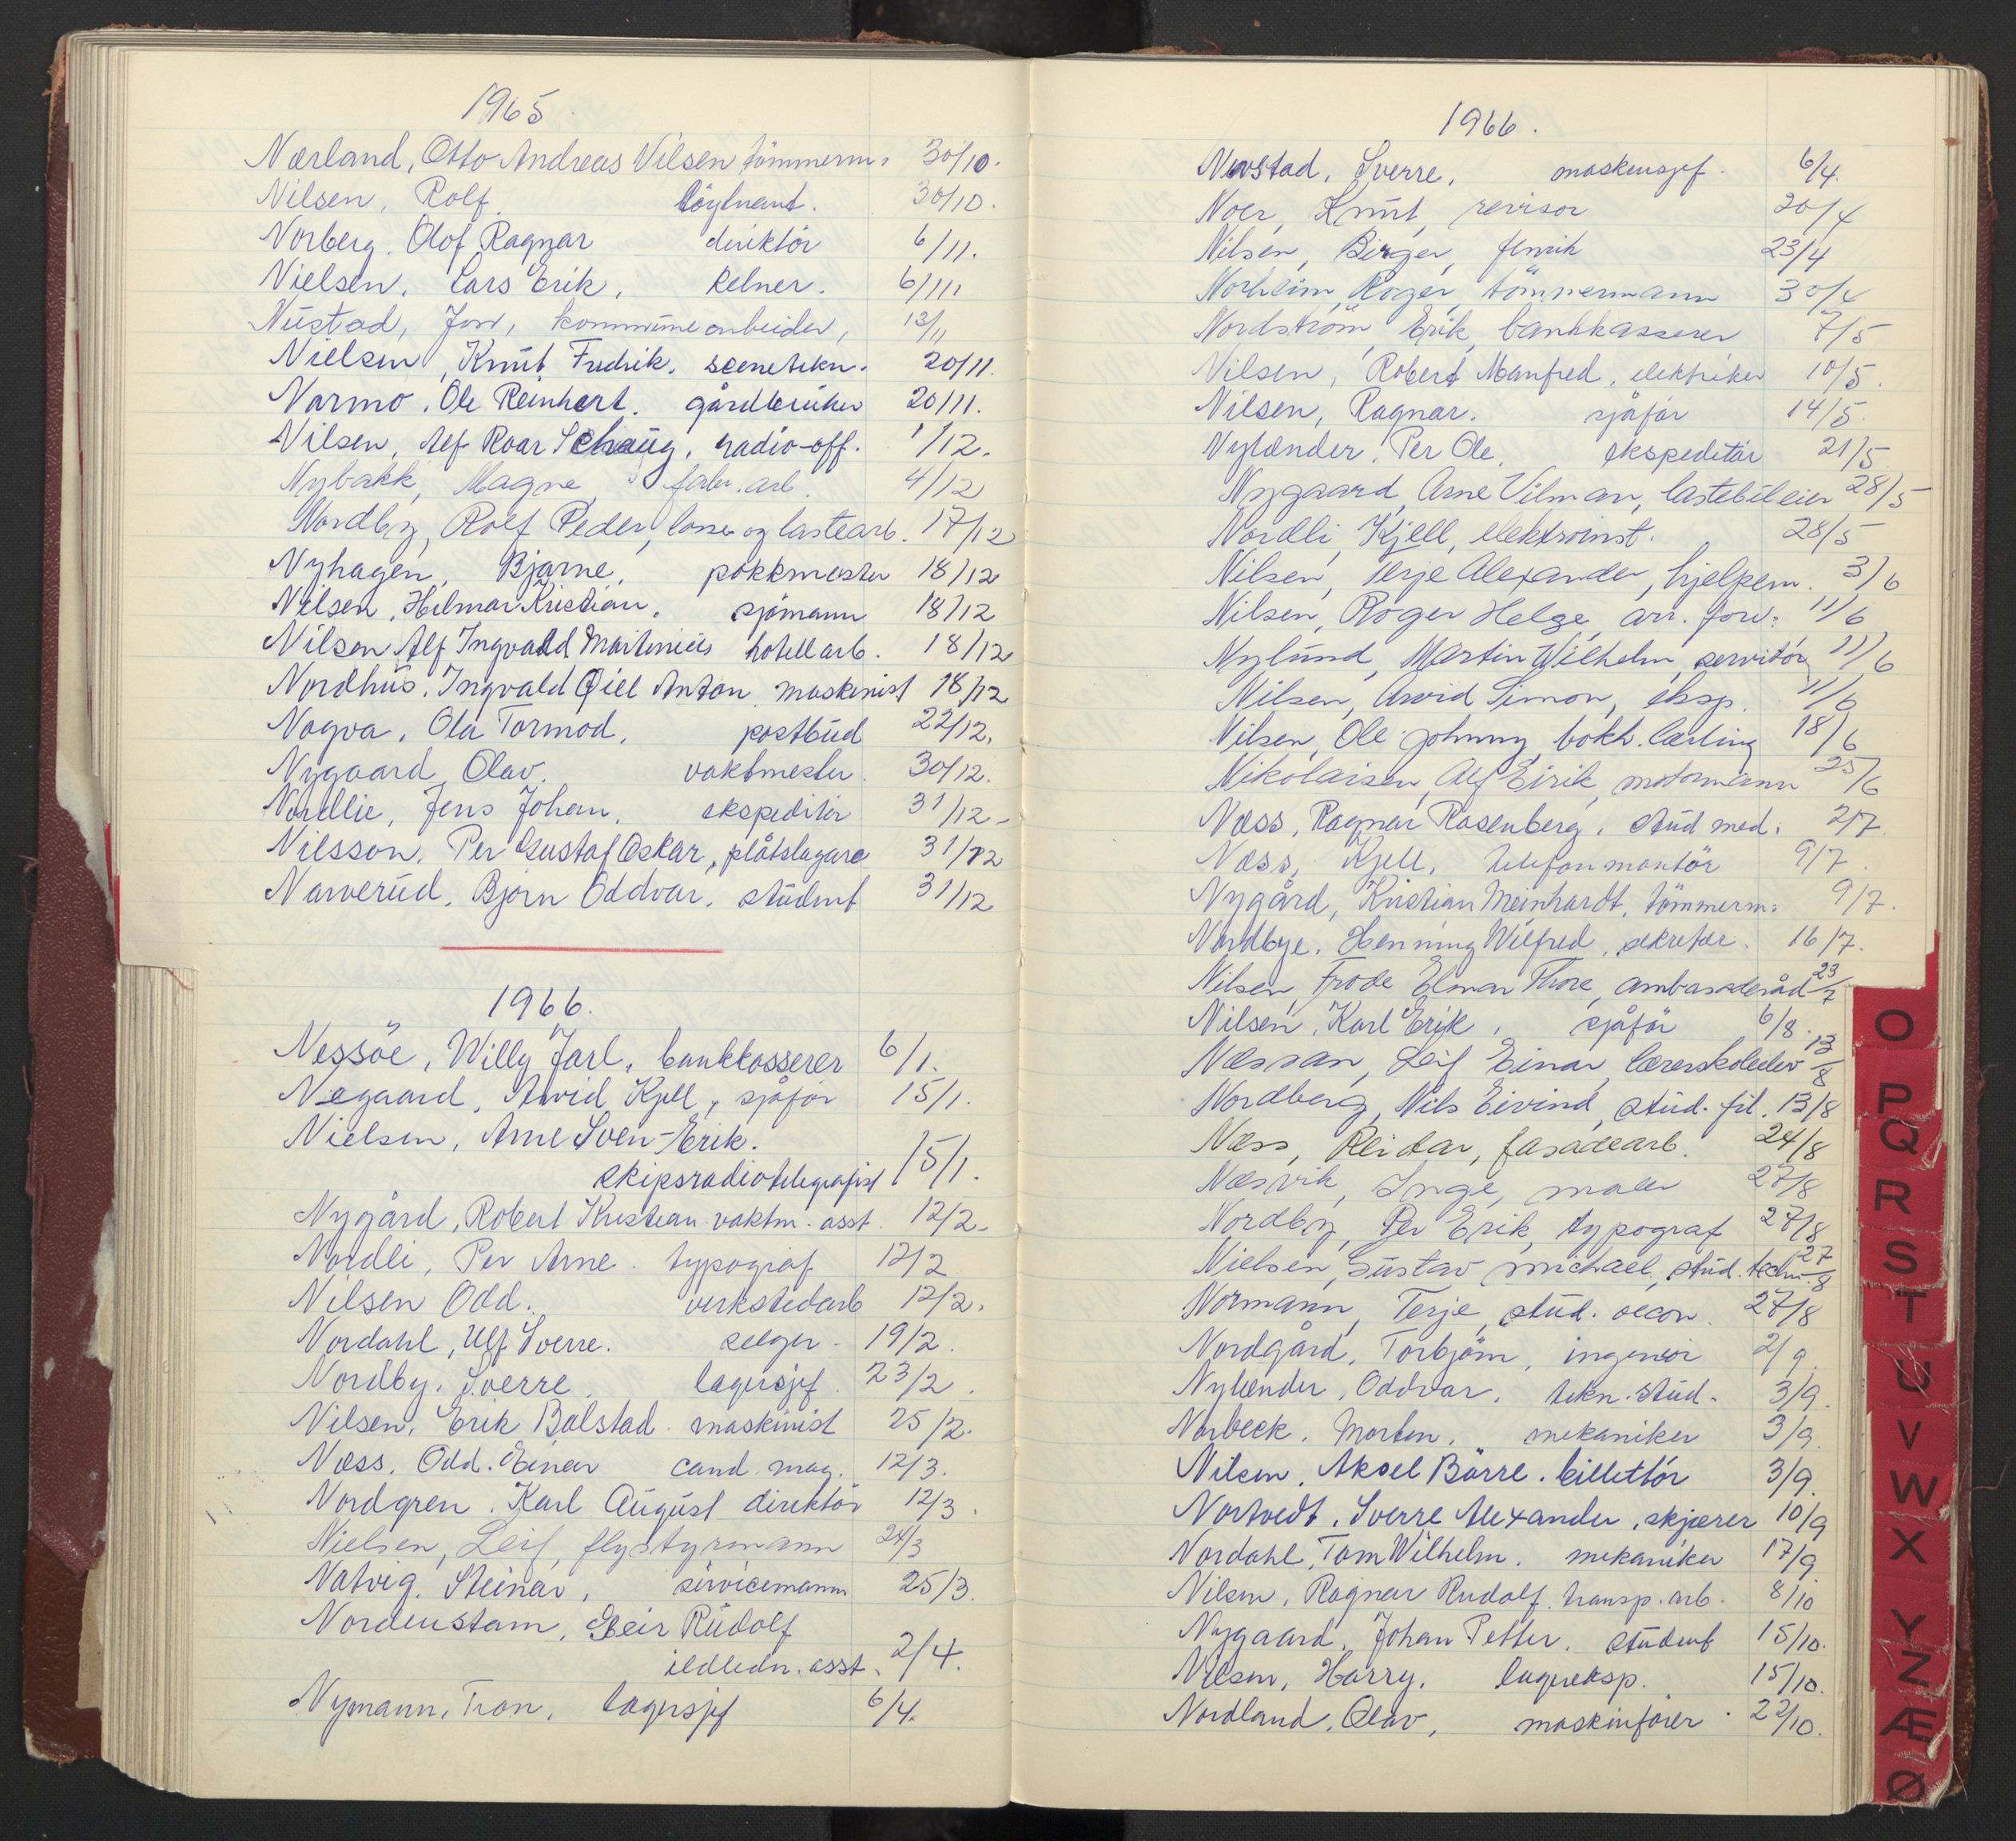 1965.
Nærland, Otto Andreas Nilsen tömmerm. 30/10.
Nilsen, Rolf. löytnant. 30/10.
Norberg, Olof Ragnar direktör 6/11.
Nielsen, Lars Erik, kelner. 6/11
Nustad, Jon, kommunearbeider, 13/11
Nielsen, Knut Fredrik. scenetekn. 20/11.
Narmo, Ole Reinhart. gårdbruker 20/11.
Nilsen, Alf Roar Schaug, radio-off. 1/12.
Nybakk, Magne, fabr. arb. 4/12
Nordby, Rolf Peder, losse og lastearb. 17/12
Nyhagen, Bjarne, pakkmester 18/12
Nilsen, Hilmar Kristian, sjömann 18/12
Nilsen Alf Ingvald Martinius hotellarb. 18/12
Nordhus, Ingvald Anton maskinist 18/12
Nogva, Ola Tormod, postbud 22/12.
Nygaard, Olav. vaktmester. 30/12.
Nordlie, Jens Johan, ekspeditör 31/12-
Nilsson, Per Gustaf Oskar, plåtslagare 31/12
Narverud, Björn Oddvar. student 31/12
1966.
Nessöe, Willy Jarl, bankkasserer 6/1.
Negaard, Arvid Kjell, sjåför 15/1.
Nielsen, Arne Sven-Erik.
skipsradiotelegrafist 15/1.
Nygård, Robert Kristian vaktm. asst. 12/2-
Nordli, Per Arne. typograf 12/2
Nilsen Odd. verkstedarb 12/2.
Nordahl, Ulf Sverre. selger - 19/2.
Nordby, Sverre. lagersjef. 23/2.
Nilsen, Erik Bolstad. maskinist 25/2.
Næss, Odd. Einar cand. mag. 12/3.
Nordgren, Karl August direktör 12/3.
Nielsen, Leif, flystyrmann 24/3
Natvig, Steinar, servicemann 25/3.
Nordenstam, Geir Rudolf
ildledn. asst. 2/4.
Nymann, Tron, lagersjef 6/4.
1966.
Navstad, Sverre, maskinsjef. 6/4.
Noer, Knut, revisor 20/4
Nilsen, Birger, fenrik 23/4
Norheim, Roger, tömmermann 30/4
Nordström, Erik, bankkasserer 7/5
Nilsen, Robert Manfred, elektriker 10/5.
Nilsen, Ragnar. sjåför 14/5.
Nylænder, Per Ole, ekspeditör 21/5
Nygaard, Arne Vilman, lastebileier 28/5
Nordli, Kjell, elektroinst. 28/5
Nilsen, Terje Alexander, hjelpem. 3/6
Nilsen, Roger Helge, arr. forv. 11/6
Nylund, Martin Wilhelm, servitör 11/6
Nilsen, Arvid Simon, eksp. 11/6
Nilsen, Ole Johnny, bokh. lærling 18/6
Nikolaisen, Alf Eirik, motormann 25/6
Næss, Ragnar Rosenberg, stud med. 2/7.
Næss, Kjell, telefonmontör 9/7.
Nygård, Kristian Meinhardt, tömmerm. 9/7.
Nordbye, Henning Wilfred, sekretær. 16/7.
Nilsen, Frode Elmar Thore, ambassaderåd 23/7
Nilsen, Karl Erik, sjåför 6/8.
Næssan, Leif Einar, lærerskoleelev 13/8
Nordberg, Nils Eivind, stud. fil. 13/8
Næss, Reidar, fasadearb. 24/8
Næsvik, Inge, maler 27/8
Nordby, Per Erik, typograf 27/8
Nielsen, Gustav Michael, stud. techn. 27/8
Normann, Terje, stud. oecon. 27/8
Nordgård, Torbjörn, ingeniör 2/9.
Nylænder, Oddvar, tekn. stud. 3/9.
Norbeck, Morten, mekaniker 3/9.
Nilsen, Aksel Börre. billettör 3/9.
Nortvedt, Sverre Alexander, skjærer 10/9
Nordahl, Tom Wilhelm. mekaniker 17/9
Nilsen, Ragnar Rudolf transp. arb. 8/10
Nygaard, Johan Petter. student 15/10.
Nilsen, Harry, lagereksp. 15/10.
Nordland, Olav, maskinfører. 22/10.
O
P
Q
R
S
T
U
V
W
X
Y
Z
Æ
Ø